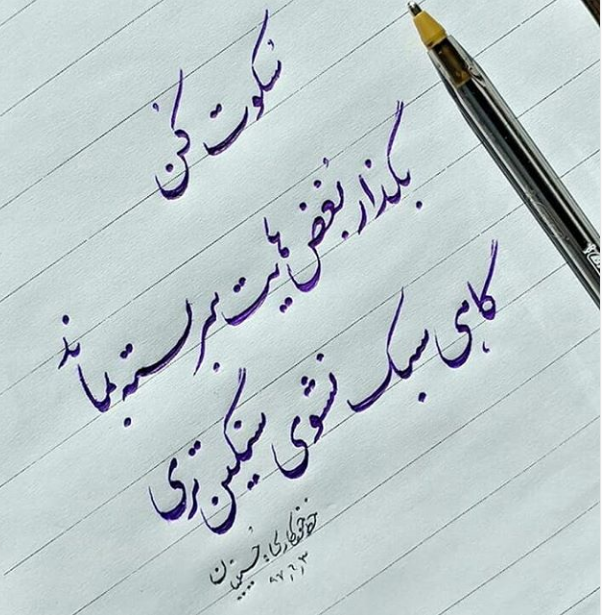 سکوت کُن
بگذار بُغض هایت سربسته بماند
گاهی سبک نشوی سنگین تری
خط خودکاری: حُسینیان
۹۷,۲,۳